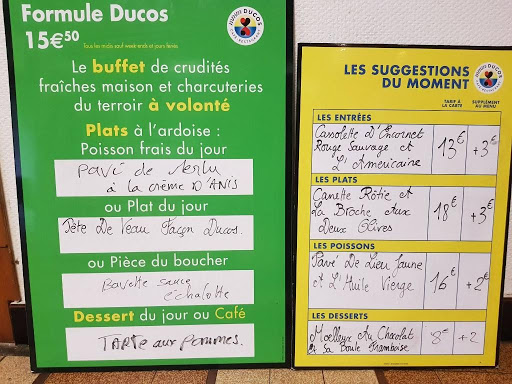 Formule Ducos
15€50
Tous les midis sauf week-ends et jours fériés
Le buffet de crudités
fraîches maison et charcuteries
du terroir à volonté
Plats à l'ardoise :
Poisson frais du jour
Pavé de Merlu
à la crème D'ANIS
ou Plat du jour
Tête De Veau Façon Ducos.
ou Pièce du boucher
Bavette sauce
échalotte
Dessert du jour ou Café
TARTE aux pommes.
DUCOS
LES SUGGESTIONS
DU MOMENT
DUCOS
TARIF À
LA CARTE
SUPPLÉMENT
AU MENU
LES ENTRÉES
Cassolette D'Encornet
Rouge Sauvage et
L'Américaine
13€
+3€
LES PLATS
Canette Rôtie et
La Broche Aux
Deux Olives
18€
+3€
LES POISSONS
Pavé De Lieu Jaune
et L'Huile Vierge
16€
+2€
LES DESSERTS
Moelleux Au Chocolat
et Sa Boule Framboise
8€
+2